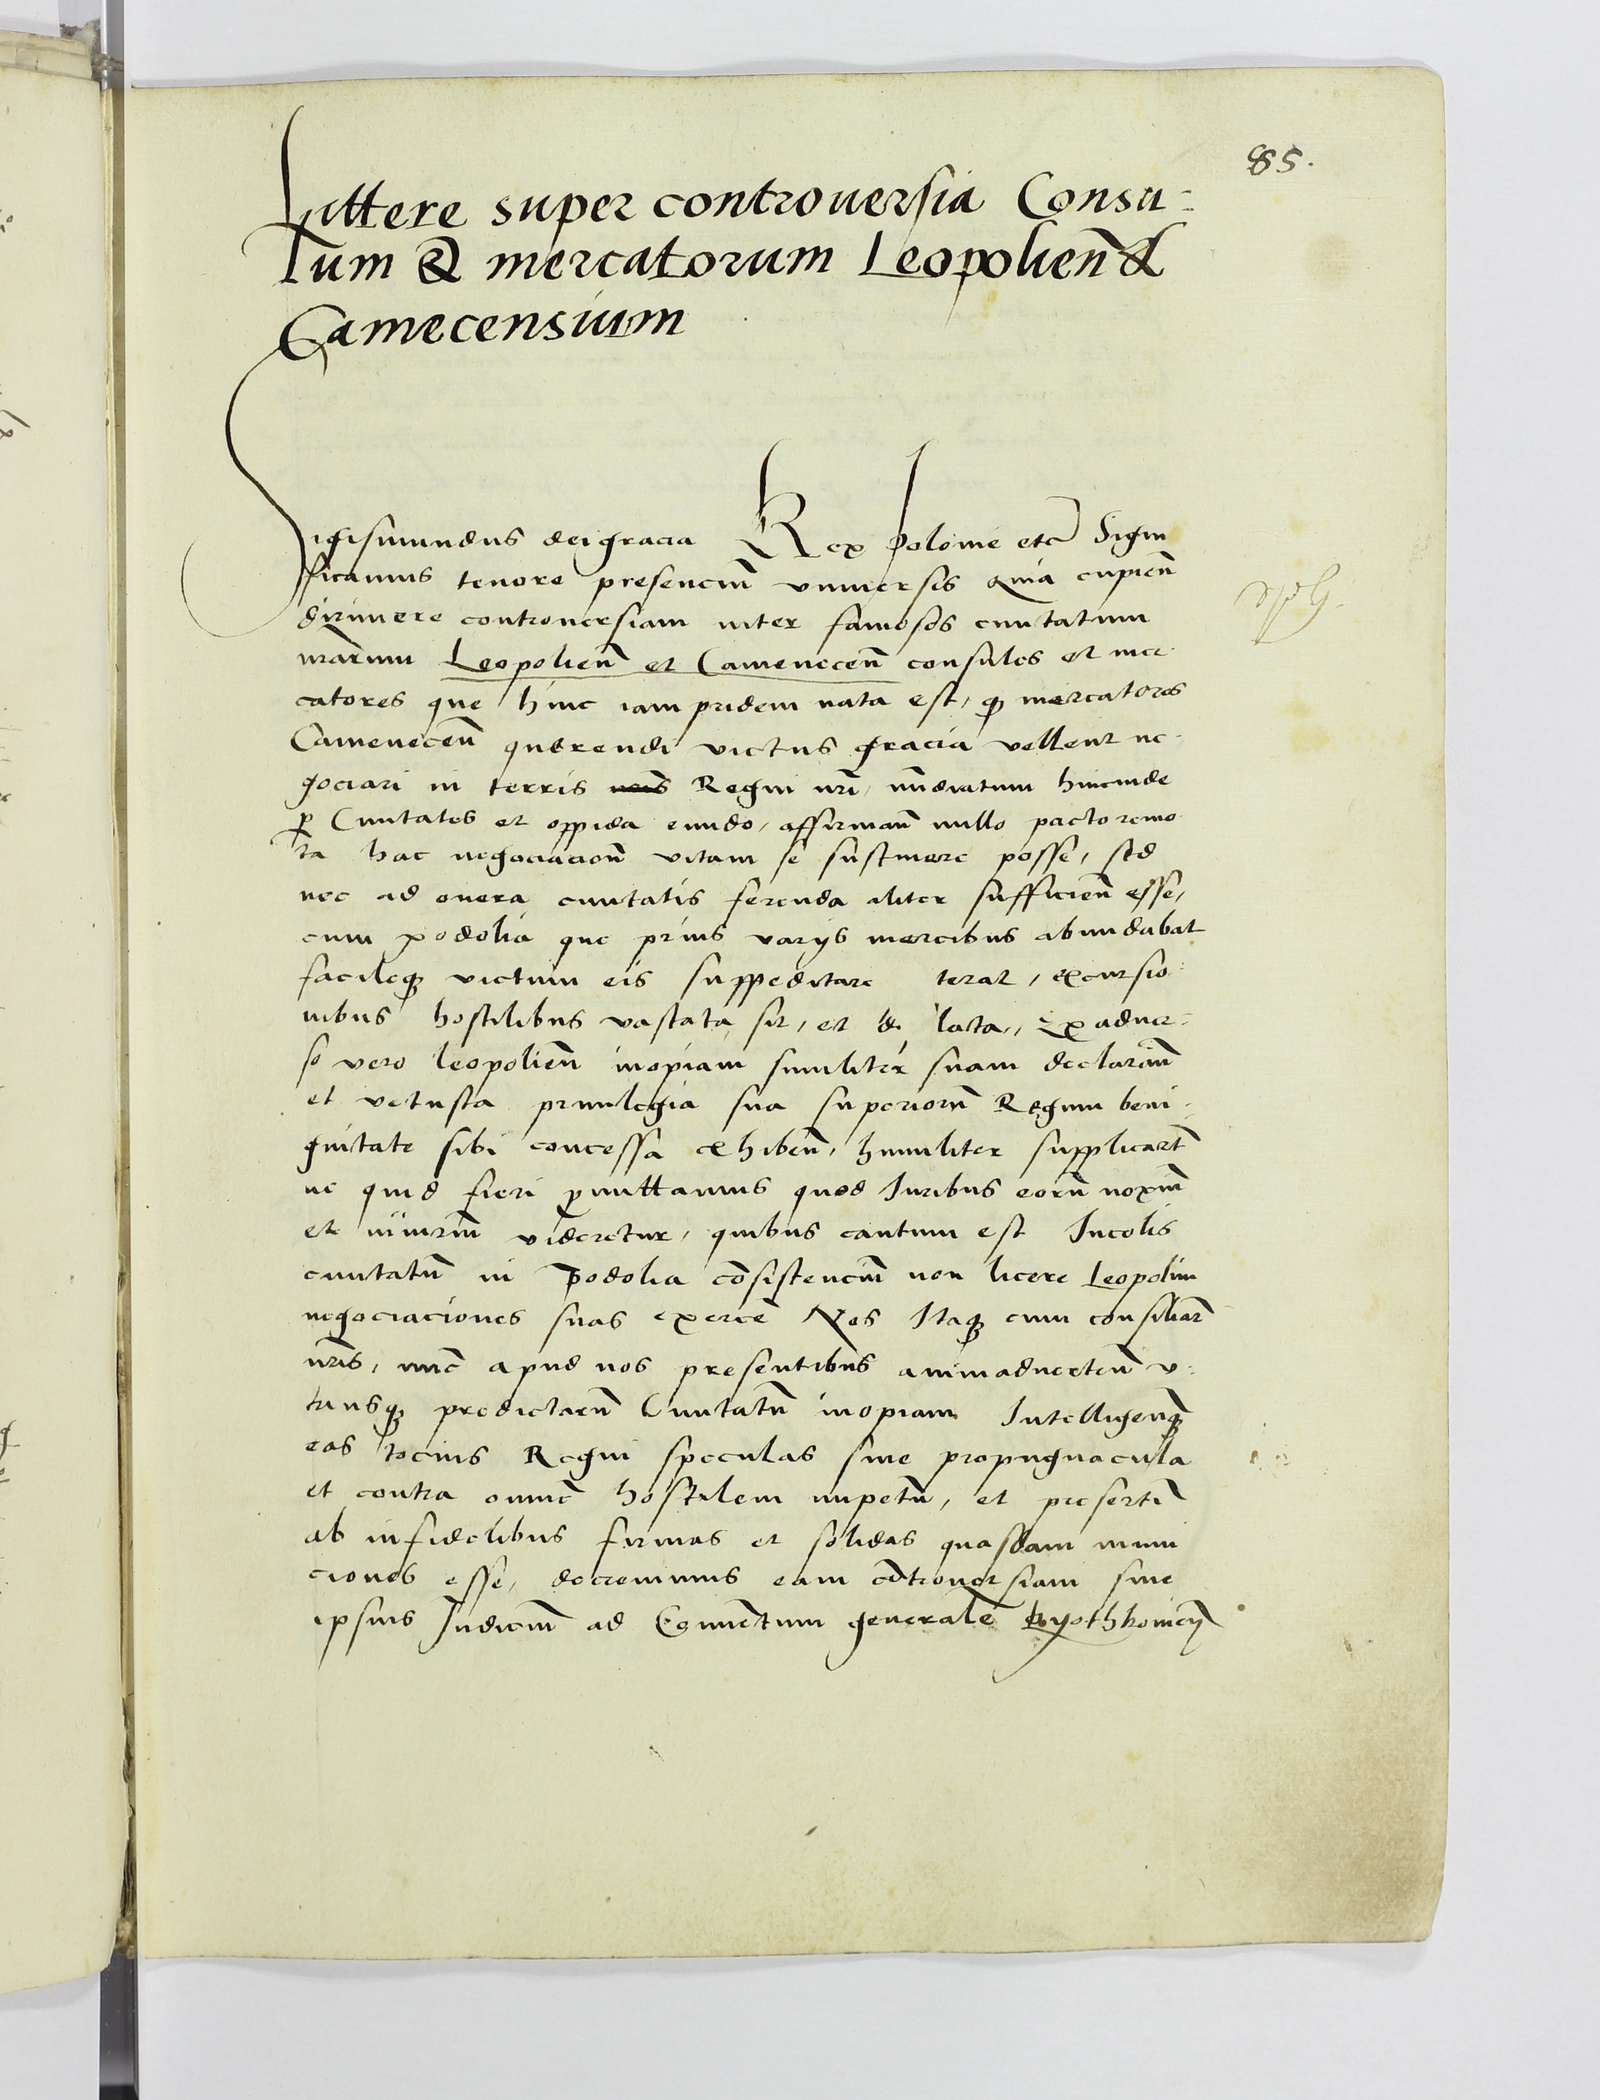 85.
Littere super controuersia Consu-
lum & mercatorum Leopolien̄ &
Camecensium
Sigismundus dei gracia Rex Polonie etc̄ Signi
ficamus tenore presenciū vniuersis quia cupien̄
dirimere controuersiam inter famosos ciuitatum
nrārum Leopolien̄ et Camenecen̄ consules et mer-
catores que hinc iam pridem nata est, qͦ mercatores
Camenecen̄ querendi victus gracia vellent ne-
gociari in terris Regni nrī, nūdinatum hincinde
ꝑ Ciuitates et oppida eundo, affirman̄ nullo pacto remo
ta hac negociacion̄ vitam se sustinere posse, sed
nec ad onera ciuitatis ferenda aliter sufficien̄ esse,
cum podolia que prius varijs mercibus abundabat
facileqꝫ victum eis suppeditare terat, excursio-
nibus hostilibus vastata sit, et lata, Ex aduer-
so vero leopolien̄ inopiam similiter suam declaran̄
et vetusta priuilegia sua superiorū Regum beni-
gnitate sibi concessa exhiben̄, humiliter supplicarūt
ne quid fieri ꝑmittamus quod Iuribus eorū noxiū
et iniuriū videretur, quibus cautum est Incolis
ciuitatū in Podolia cōsistenciū non licere Leopolim
negociaciones suas exercē Nos Itaqꝫ cum consiliar̄
nrīs, nūc apud nos presentibus animaduerten̄ v-
triusqꝫ predictarū Ciuitatū inopiam Intelligenqꝫ
eas tocius Regni speculas siue propugnacula
et contra omnē hostilem impetū, et presertī
ab infidelibus firmas et solidas quasdam muni
ciones esse, decreuimus eam cōtrouersiam siue
ipsius Iudiciū ad Conuentum generalē Pyothkouien̄